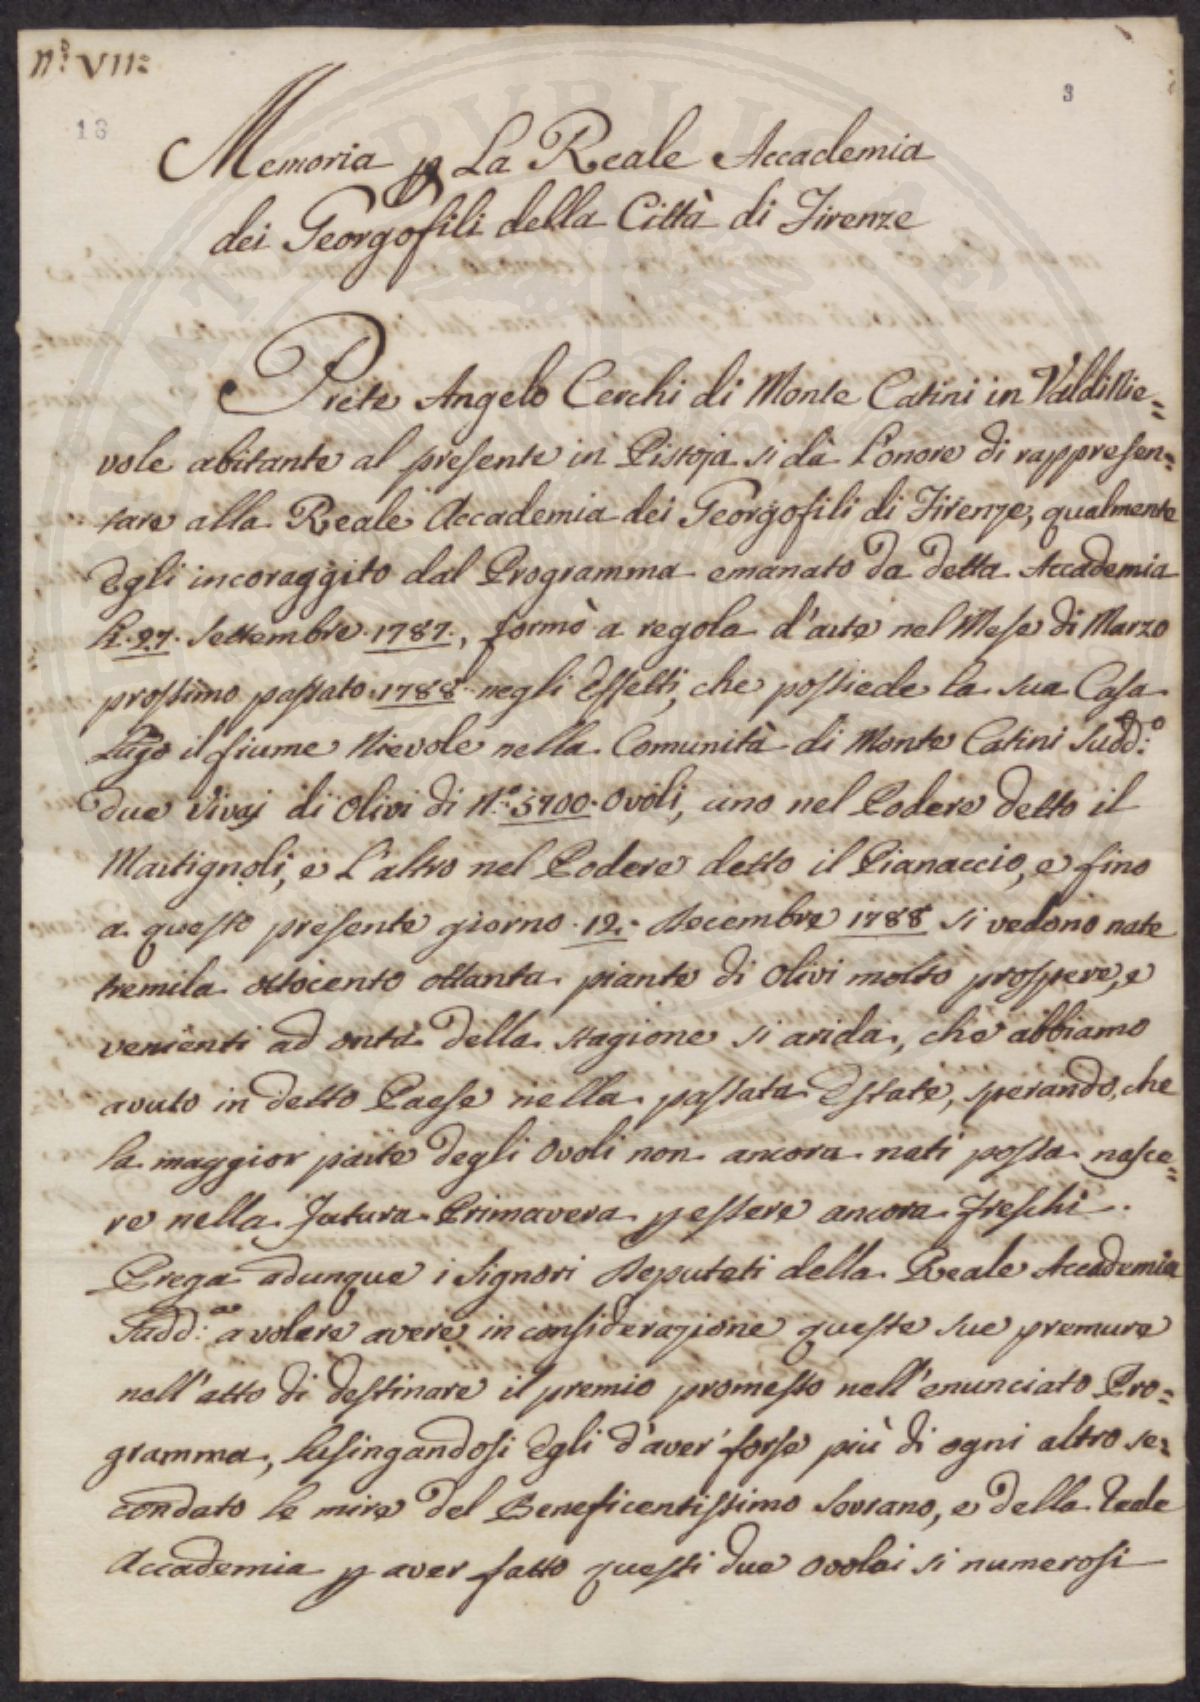 N.º VII=
18
3
Memoria p La Reale Accademia
dei Georgofili della Città di Firenze
Prete Angelo Cerchi di Monte Catini in ValdiNie=
vole abitante al presente in Pistoja si dà l'onore di rappresen=
tare alla Reale Accademia dei Georgofili di Firenze, qualmente
Egli incoraggito dal Programma emanato da detta Accademia
li 27. Settembre 1787., formò a regola d'arte nel Mese di Marzo
prossimo passato 1788 negli Effetti, che possiede la sua Casa
Lugo il fiume Nievole nella Comunità di Monte Catini Sudd:º
due Vivaj di Olivi di N.º 5700. Ovoli, uno nel Podere detto il
Martignoli, e l'altro nel Podere detto il Pianaccio, e fino
a questo presente giorno 12. Decembre 1788 si vedono nate
tremila ottocento ottanta piante di Olivi molto prospere, e
venienti ad onta della stagione sì arida, che abbiamo
avuto in detto Paese nella passata Estate, sperando, che
la maggior parte degli Ovoli non ancora nati possa nasce=
re nella futura Primavera p essere ancora freschi.
Prega adunque i Signori Deputati della Reale Accademia
Sudd:ª a volere avere in considerazione queste sue premure
nell'atto di destinare il premio promesso nell'enunciato Pro=
gramma, lusingandosi Egli d'aver' forse più di ogni altro se=
condato le mire del Beneficentissimo Sovrano, e della Reale
Accademia p aver fatto questi due Ovolai sì numerosi